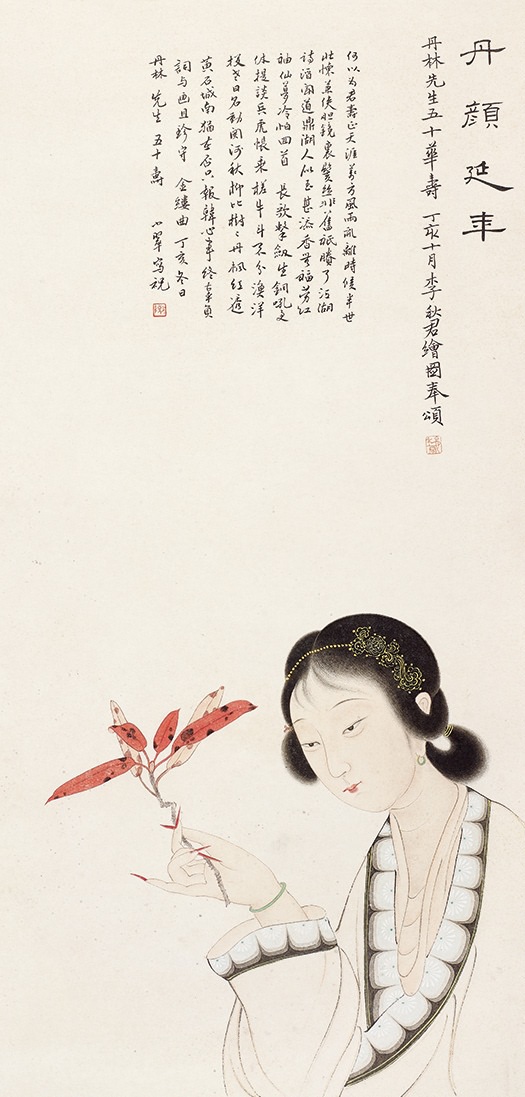 丹顏延年
丹林先生五十華壽 丁亥十月李秋君繪圖奉頌
何以為君壽正天涯萬方風雨亂離時候半世
壯懷兼俠膽鏡裏鬢絲非舊祇賸了江湖
詩酒聞道鼎湖人似玉甚添香 紅
袖仙夢冷怕回首 長歌擊劍生銅吼更
休提談兵虎帳 槎牛斗不分 洋
投老日名動關河秋柳比樹々丹楓紅透
黃石城南猶在否只報韓心事終辜負
詞与画且珍守 金縷曲 丁亥冬日
丹林先生五十壽 小翠寫祝